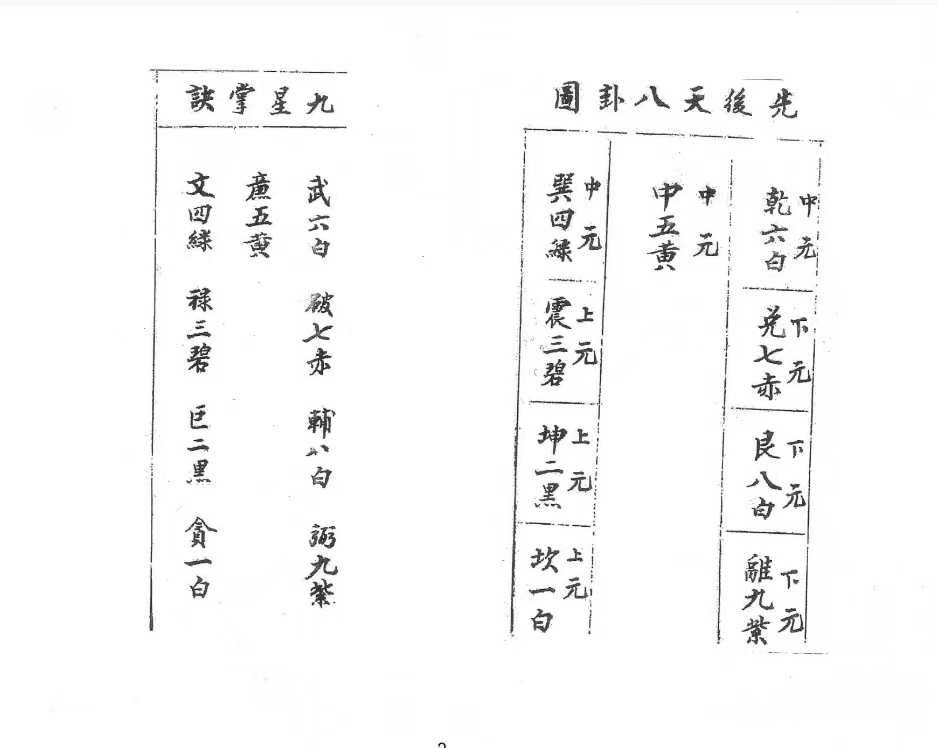 先後天八卦圖
中元 乾六白
下元 兌七赤
下元 艮八白
下元 離九紫
中元 中五黄
中元 巽四綠
上元 震三碧
上元 坤二黑
上元 坎一白
九星掌訣
武六白 破七赤 輔八白 弼九紫
廉五黄
文四綠 祿三碧 巨二黑 貪一白